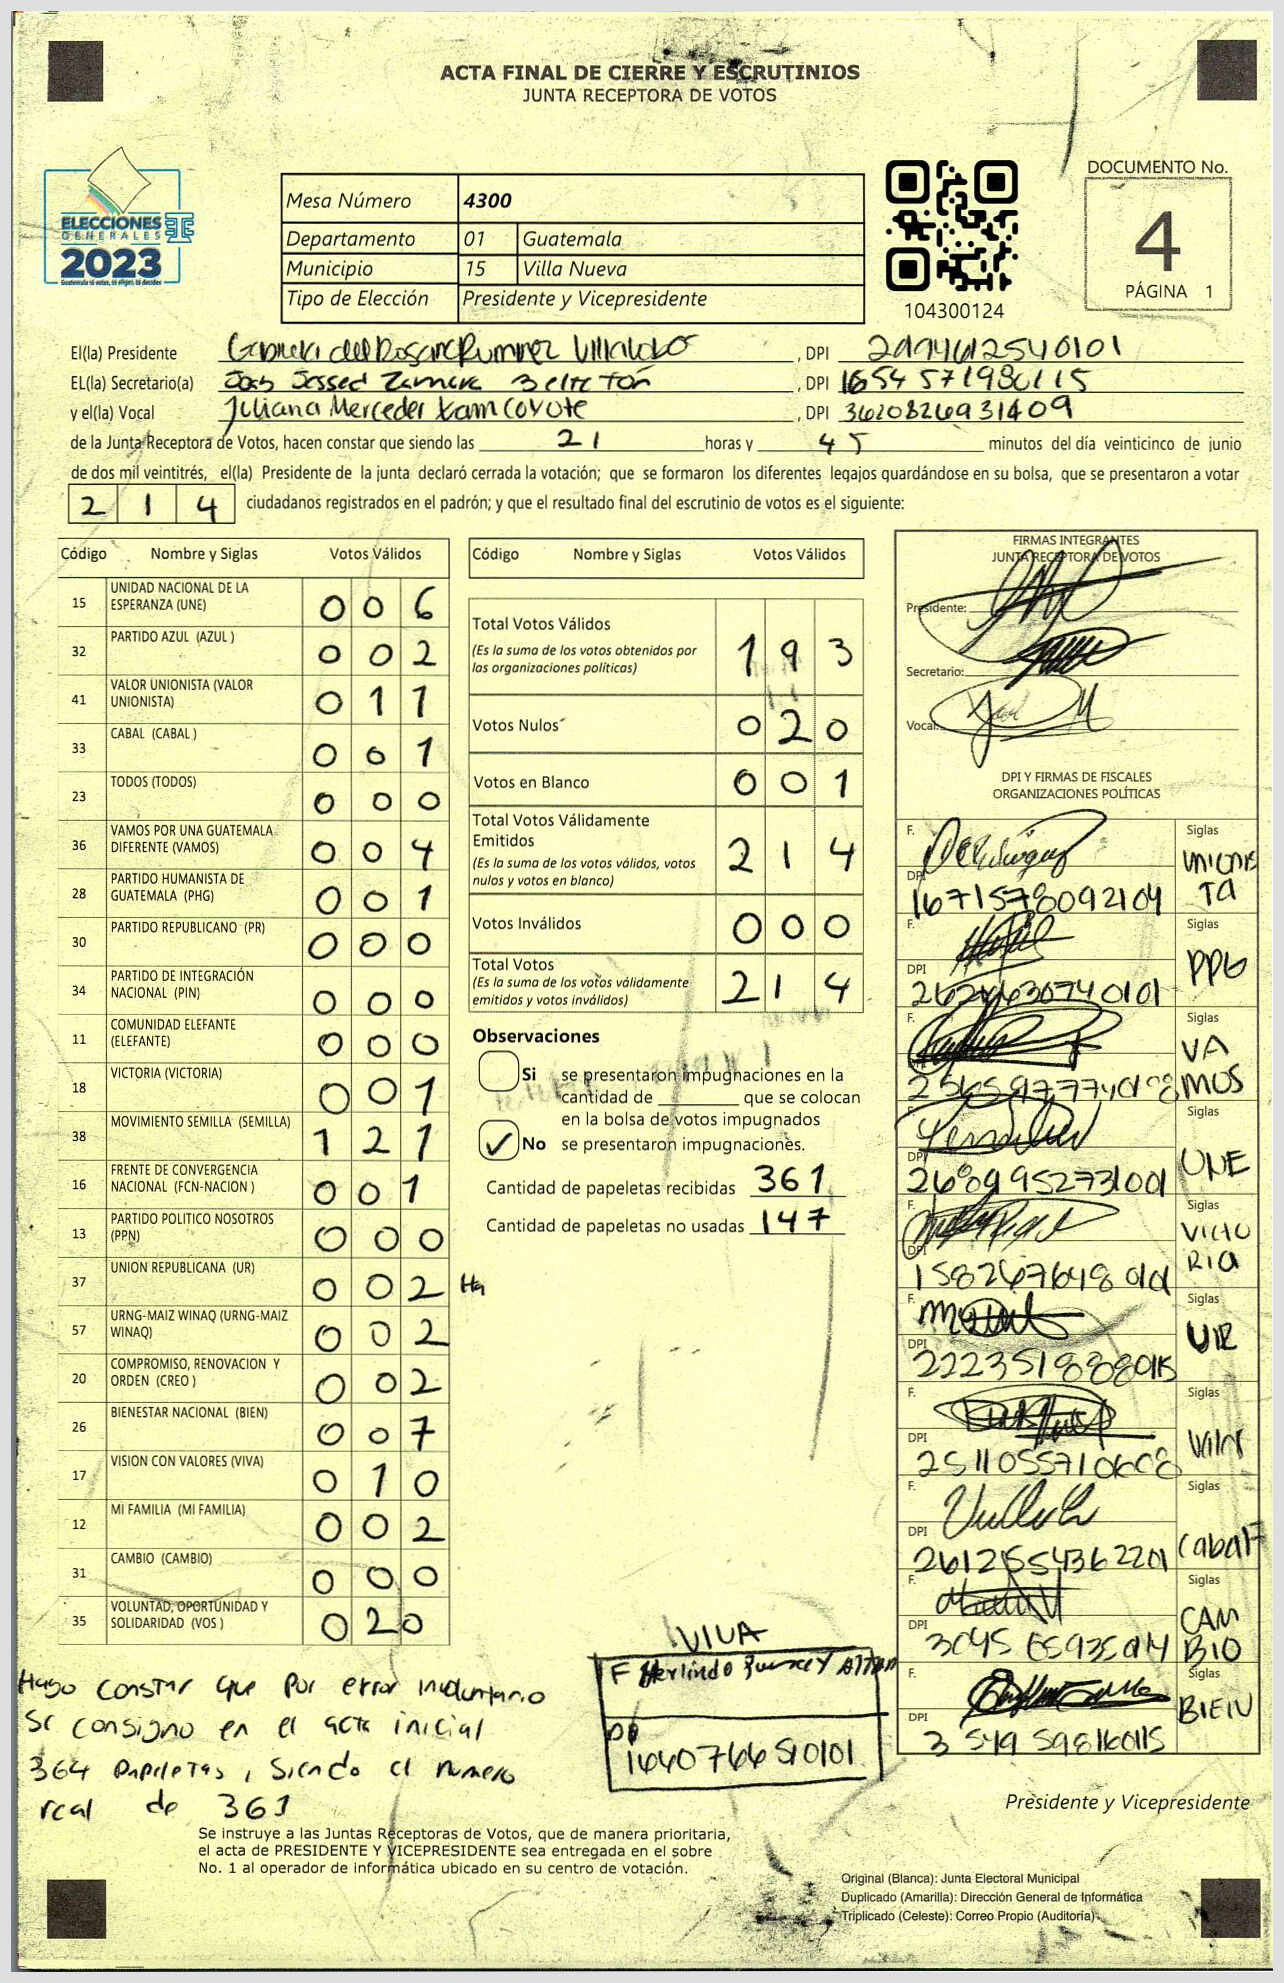 ACTA FINAL DE CIERRE Y ESCRUTINIOS
JUNTA RECEPTORA DE VOTOS
ELECCIONES
GENERALES
2023
Guatemala tú votas, tú eliges, tú decides
Mesa Número 4300
Departamento 01 Guatemala
Municipio 15 Villa Nueva
Tipo de Elección Presidente y Vicepresidente
104300124
DOCUMENTO No.
4
PÁGINA 1
El(la) Presidente , DPI
EL(la) Secretario(a) , DPI 1654 571980115
y el(la) Vocal Juliana Merceder Xam Coyote , DPI 3620826931409
de la Junta Receptora de Votos, hacen constar que siendo las 21 horas y 45 minutos del día veinticinco de junio
de dos mil veintitrés, el(la) Presidente de la junta declaró cerrada la votación; que se formaron los diferentes legajos guardándose en su bolsa, que se presentaron a votar
2 1 4 ciudadanos registrados en el padrón; y que el resultado final del escrutinio de votos es el siguiente:
Código Nombre y Siglas Votos Válidos
15 UNIDAD NACIONAL DE LA ESPERANZA (UNE) 0 0 6
32 PARTIDO AZUL (AZUL ) 0 0 2
41 VALOR UNIONISTA (VALOR UNIONISTA) 0 1 1
33 CABAL (CABAL ) 0 0 1
23 TODOS (TODOS) 0 0 0
36 VAMOS POR UNA GUATEMALA DIFERENTE (VAMOS) 0 0 4
28 PARTIDO HUMANISTA DE GUATEMALA (PHG) 0 0 1
30 PARTIDO REPUBLICANO (PR) 0 0 0
34 PARTIDO DE INTEGRACIÓN NACIONAL (PIN) 0 0 0
11 COMUNIDAD ELEFANTE (ELEFANTE) 0 0 0
18 VICTORIA (VICTORIA) 0 0 1
38 MOVIMIENTO SEMILLA (SEMILLA) 1 2 1
16 FRENTE DE CONVERGENCIA NACIONAL (FCN-NACION ) 0 0 1
13 PARTIDO POLITICO NOSOTROS (PPN) 0 0 0
37 UNION REPUBLICANA (UR) 0 0 2
57 URNG-MAIZ WINAQ (URNG-MAIZ WINAQ) 0 0 2
20 COMPROMISO, RENOVACION Y ORDEN (CREO ) 0 0 2
26 BIENESTAR NACIONAL (BIEN) 0 0 7
17 VISION CON VALORES (VIVA) 0 1 0
12 MI FAMILIA (MI FAMILIA) 0 0 2
31 CAMBIO (CAMBIO) 0 0 0
35 VOLUNTAD, OPORTUNIDAD Y SOLIDARIDAD (VOS ) 0 2 0
Código Nombre y Siglas Votos Válidos
Total Votos Válidos 1 9 3
(Es la suma de los votos obtenidos por
las organizaciones políticas)
Votos Nulos 0 2 0
Votos en Blanco 0 0 1
Total Votos Válidamente
Emitidos 2 1 4
(Es la suma de los votos válidos, votos
nulos y votos en blanco)
Votos Inválidos 0 0 0
Total Votos 2 1 4
(Es la suma de los votos válidamente
emitidos y votos inválidos)
Observaciones
Si se presentaron impugnaciones en la
cantidad de ________ que se colocan
en la bolsa de votos impugnados
No se presentaron impugnaciones.
Cantidad de papeletas recibidas 361
Cantidad de papeletas no usadas 147
FIRMAS INTEGRANTES
JUNTA RECEPTORA DE VOTOS
Presidente:
Secretario:
Vocal:
DPI Y FIRMAS DE FISCALES
ORGANIZACIONES POLÍTICAS
F. Siglas
DPI UNIONISTA
1671578092104
F. Siglas
DPI PPG
F. Siglas
VAMOS
F. Siglas
DPI UNE
26899952731001
F. Siglas
DPI VICTORIA
F. Siglas
DPI UR
2223518880115
F. Siglas
DPI Valor
F. Siglas
DPI Cabal
2612554362201
F. Siglas
DPI CAMBIO
F. Siglas
DPI BIEN
3 549 598160115
VIVA
F Herlindo
DPI
1640766510101
Hago constar que por error involuntario
se consigno en el acta inicial
364 papeletas, siendo el numero
real de 361
Presidente y Vicepresidente
Se instruye a las Juntas Receptoras de Votos, que de manera prioritaria,
el acta de PRESIDENTE Y VICEPRESIDENTE sea entregada en el sobre
No. 1 al operador de informática ubicado en su centro de votación.
Original (Blanca): Junta Electoral Municipal
Duplicado (Amarilla): Dirección General de Informática
Triplicado (Celeste): Correo Propio (Auditoría)